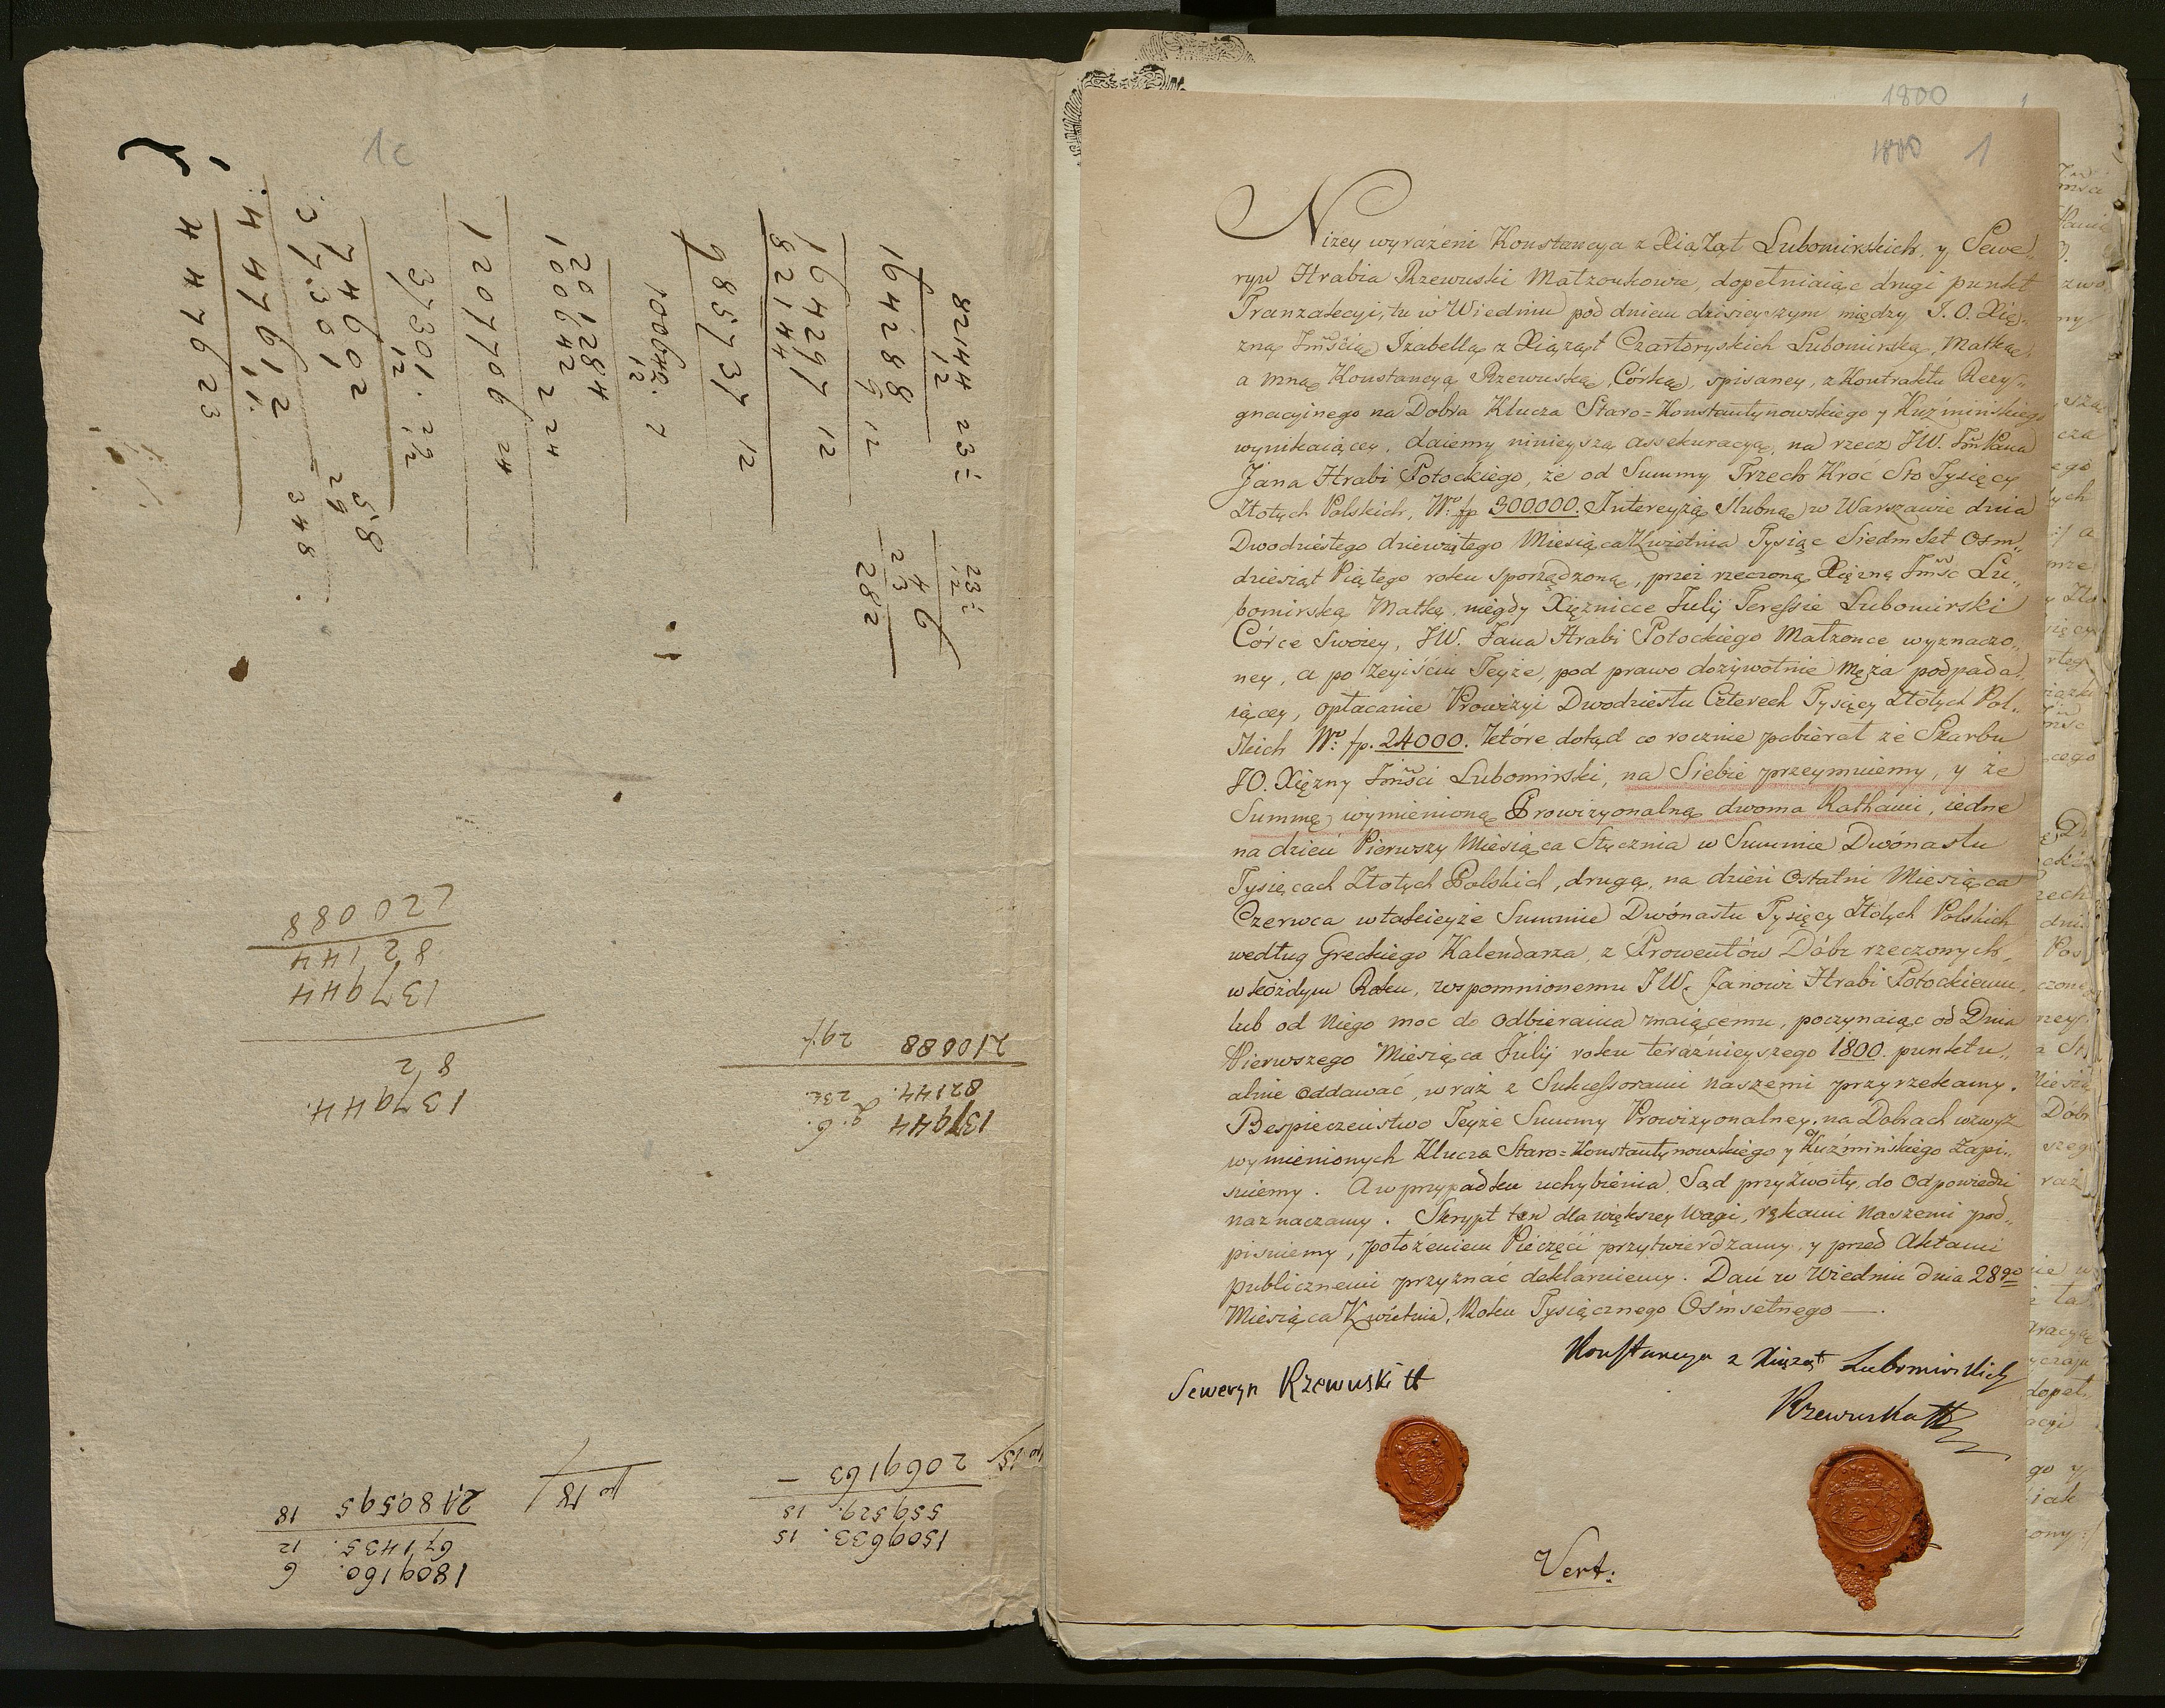 1c
82144 23
12
164288
9 12
164297 12
82144
985737 12
100642. 7
12
201284
100642 2 24
1207706 24
37301. 22
12
74602 58
37301 29
348
447612
447623
23
12
46
23
282
137944.
82
137944
82144
220088
137944 6.
82144. 23
210088 29
1509633. 15
559529. 15
2069163 —
1809160. 6
671435. 12
2,180,595 18
1800
1800 1
Niżey wyrażeni Konstancya z Xiążąt Lubomirskich, y Sewe„
ryn Hrabia Rzewuski Małżonkowie, dopełniaiąc drugi punkt
Tranzakcyi, tu w Wiedniu pod dniem dzisieyszym między J. O. Xię„
żną Jmścią Izabellą z Xiążąt Czartoryskich Lubomirską, Matką,
a mną Konstancyą Rzewuską, Córką, spisaney, z Kontraktu Rezy„
gnacyinego na Dobra Klucza Staro=Konstantynowskiego y Kuźmińskiego
wynikaiącey, daiemy ninieyszą assekuracyą, na rzecz JW. Jmć Pana
Jana Hrabi Potockiego, że od Summy Trzech Kroc Sto Tysięcy
Złotych Polskich, Nro fp 300000. Intercyzą Ślubną w Warszawie dnia
Dwodziestego dziewiątego Miesiąca Kwietnia Tysiąc Siedmset Ośm„
dziesiąt Piątego roku sporządzoną, przez rzeczoną Xiężnę Jmść Lu„
bomirską Matkę, niegdy Xiężnicce Julij Teressie Lubomirski
Córce Swoiey, JW. Jana Hrabi Potockiego Małżonce wyznaczo„
ney, a po zeyiściu Teyże, pod prawo dożywotnie Męża podpada„
iącey, opłacanie Prowizyi Dwodziestu Czterech Tysięcy Złotych Pol„
skich Nro fp. 24000. które dotąd co rocznie pobierał ze Skarbu
JO. Xiężny Jmści Lubomirski, na Siebie przeymuiemy, y że
Summę wymienioną Prowizyonalną dwoma Rathami, iedne
na dzień Pierwszy Miesiąca Stycznia w Summie Dwónastu
Tysięcach Złotych Polskich, drugą, na dzień Ostatni Miesiąca
Czerwca w takieyże Summie Dwónastu Tysięcy Złotych Polskich
według Greckiego Kalendarza, z Prowentów Dóbr rzeczonych,
w kóżdym Roku, wspomnionemu JW. Janowi Hrabi Potockiemu,
lub od Niego moc do odbierania maiącemu, poczynaiąc od Dnia
Pierwszego Miesiąca Julij roku teraźnieyszego 1800. punktu„
alnie oddawać, wraz z Sukcessorami naszemi przyrzekamy.
Bespieczeństwo Teyże Summy Prowizyonalney, na Dobrach wzwyż
wymienionych Klucza Staro=Konstantynowskiego y Kuźmińskiego Zapi„
suiemy. A w przypadku uchybienia Sąd przyzwoity, do odpowiedzi
naznaczamy. Skrypt ten dla większey Wagi, rękami Naszemi pod„
pisuiemy, położeniem Pieczęci przytwierdzamy, y przed Aktami
publicznemi przyznać deklaruiemy. Dan w Wiedniu dnia 28go
Miesiąca Kwietnia, Roku Tysiącznego Ośmsetnego —.
Konstancya z Xiążąt Lubomirskich
Seweryn Rzewuski H
Rzewuska H
Vert: